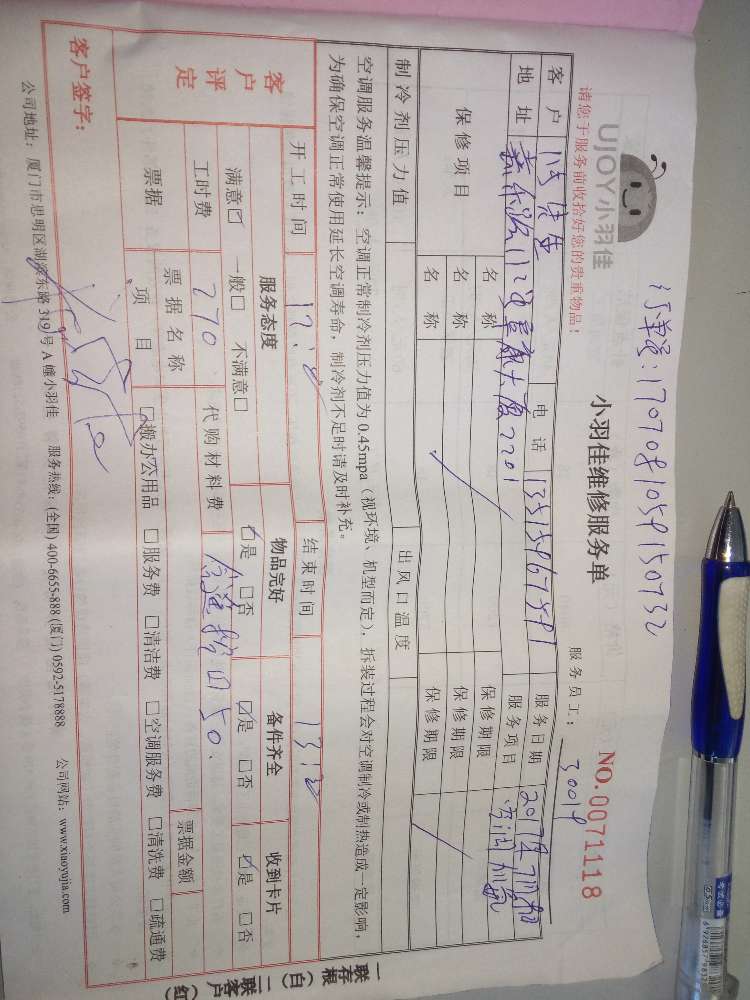 订单号:1707081059150732
UJOY小羽佳
小羽佳维修服务单
NO.0071118
请您于服务前收拾好您的贵重物品!
服务员工: 30019
客户 电话 服务日期
地址 2201 服务项目
保修项目 名称 保修期限
名称 保修期限
名称 保修期限
制冷剂压力值 出风口温度
空调服务温馨提示:空调正常制冷剂压力值为0.45mpa(视环境、机型而定),拆装过程会对空调制冷或制热造成一定影响,
为确保空调正常使用延长空调寿命,制冷剂不足时请及时补充。
开工时间 结束时间
客户评定 服务态度 物品完好 备件齐全 收到卡片
满意☑ 一般□ 不满意□ ☑是 □否 ☑是 □否 ☑是 □否
工时费 270 代购材料费 50.
票据 票据名称 票据金额
项目 □搬办公用品 □服务费 □清洁费 □空调服务费 □清洗费 □疏通费
客户签字:
公司地址:厦门市思明区湖滨东路319号A幢小羽佳 服务热线:(全国) 400-6655-888 (厦门) 0592-5178888 公司网站:www.xiaoyujia.com
一联存根(白) 二联客户(红)
考试必备
0.5mm